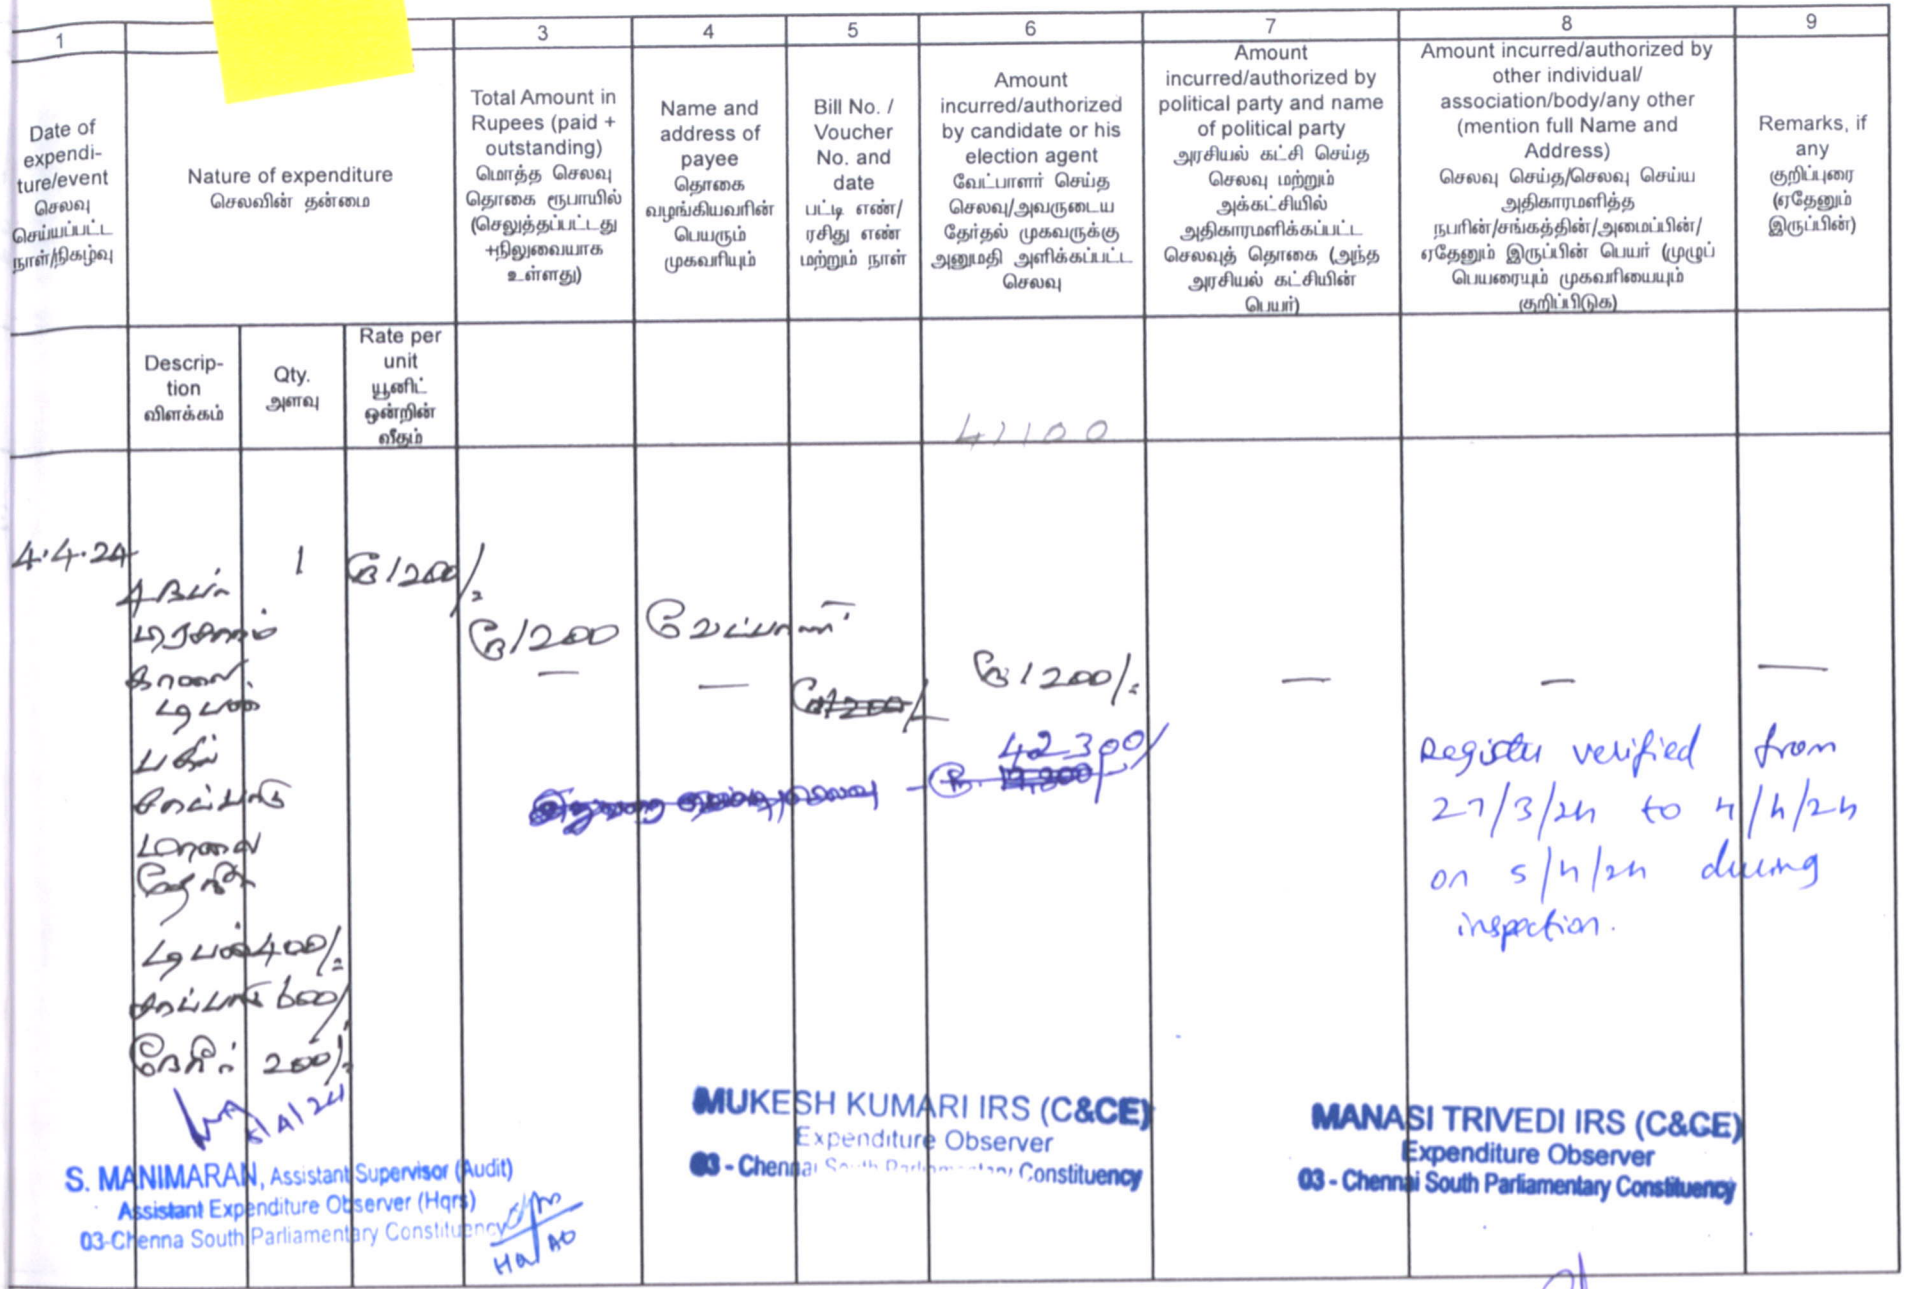 1
3
4
5
6
7
8
9
Date of
expendi-
ture/event
செலவு
செய்யப்பட்ட
நாள்/நிகழ்வு
Nature of expenditure
செலவின் தன்மை
Total Amount in
Rupees (paid +
outstanding)
மொத்த செலவு
தொகை ரூபாயில்
(செலுத்தப்பட்டது
+நிலுவையாக
உள்ளது)
Name and
address of
payee
தொகை
வழங்கியவரின்
பெயரும்
முகவரியும்
Bill No. /
Voucher
No. and
date
பட்டி எண்/
ரசிது எண்
மற்றும் நாள்
Amount
incurred/authorized
by candidate or his
election agent
வேட்பாளர் செய்த
செலவு/அவருடைய
தேர்தல் முகவருக்கு
அனுமதி அளிக்கப்பட்ட
செலவு
Amount
incurred/authorized by
political party and name
of political party
அரசியல் கட்சி செய்த
செலவு மற்றும்
அக்கட்சியில்
அதிகாரமளிக்கப்பட்ட
செலவுத் தொகை (அந்த
அரசியல் கட்சியின்
பெயர்)
Amount incurred/authorized by
other individual/
association/body/any other
(mention full Name and
Address)
செலவு செய்த/செலவு செய்ய
அதிகாரமளித்த
நபரின்/சங்கத்தின்/அமைப்பின்/
ஏதேனும் இருப்பின் பெயர் (முழுப்
பெயரையும் முகவரியையும்
குறிப்பிடுக)
Remarks, if
any
குறிப்புரை
(ஏதேனும்
இருப்பின்)
Descrip-
tion
விளக்கம்
Qty.
அளவு
Rate per
unit
யூனிட்
ஒன்றின்
வீதம்
41100
4.4.24
4 நபர்
பிரசாரம்
காலை
டிபன்
பகல்
சாப்பாடு
மாலை
டிபன் 400/-
சாப்பாடு 600/-
200/-
1
ரூ 1200/-
ரூ 1200
—
வேட்பாளர்
—
ரூ 1200/-
ரூ 1200/-
42300/
—
—
—
Register verified from
27/3/24 to 4/4/24
on 5/4/24 during
inspection.
5/4/24
S. MANIMARAN, Assistant Supervisor (Audit)
Assistant Expenditure Observer (Hqrs)
03-Chenna South Parliamentary Constituency
MUKESH KUMARI IRS (C&CE)
Expenditure Observer
03 - Chennai South Parliamentary Constituency
MANASI TRIVEDI IRS (C&CE)
Expenditure Observer
03 - Chennai South Parliamentary Constituency